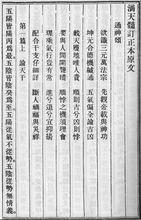 滴天髓訂正本原文
通神頌
欲識三元萬法宗　先觀帝載與神功
坤元合德機緘通　五氣偏全論吉凶
戴天履地惟人貴　順則吉兮凶則悖
要與人間開聾聵　順悖之機須理會
理乘氣行豈有常　進兮退兮宜抑揚
配合干支仔細詳　斷人禍福與災祥
第一篇上　論天干
五陽皆陽丙爲最五陰皆陰癸爲至五陽從氣不從勢五陰從勢無情義